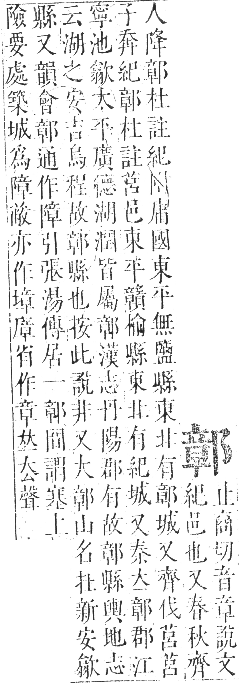 鄣
止商切音章說文
紀邑也又春秋齊
人降鄣杜註紀附庸國東平無鹽縣東北有鄣城又齊伐莒莒
子奔紀鄣杜註莒邑東平贛榆縣東北有紀城又秦立鄣郡江
寧池歙太平廣德湖潤皆屬鄣漢志丹陽郡有故鄣縣輿地志
云湖之安吉烏程故鄣縣也按此說非又大鄣山名在新安歙
縣又韻會鄣通作障引張湯傳居一鄣間謂塞上
險要處築城爲障蔽亦作墇㢓省作章𠀤厺聲